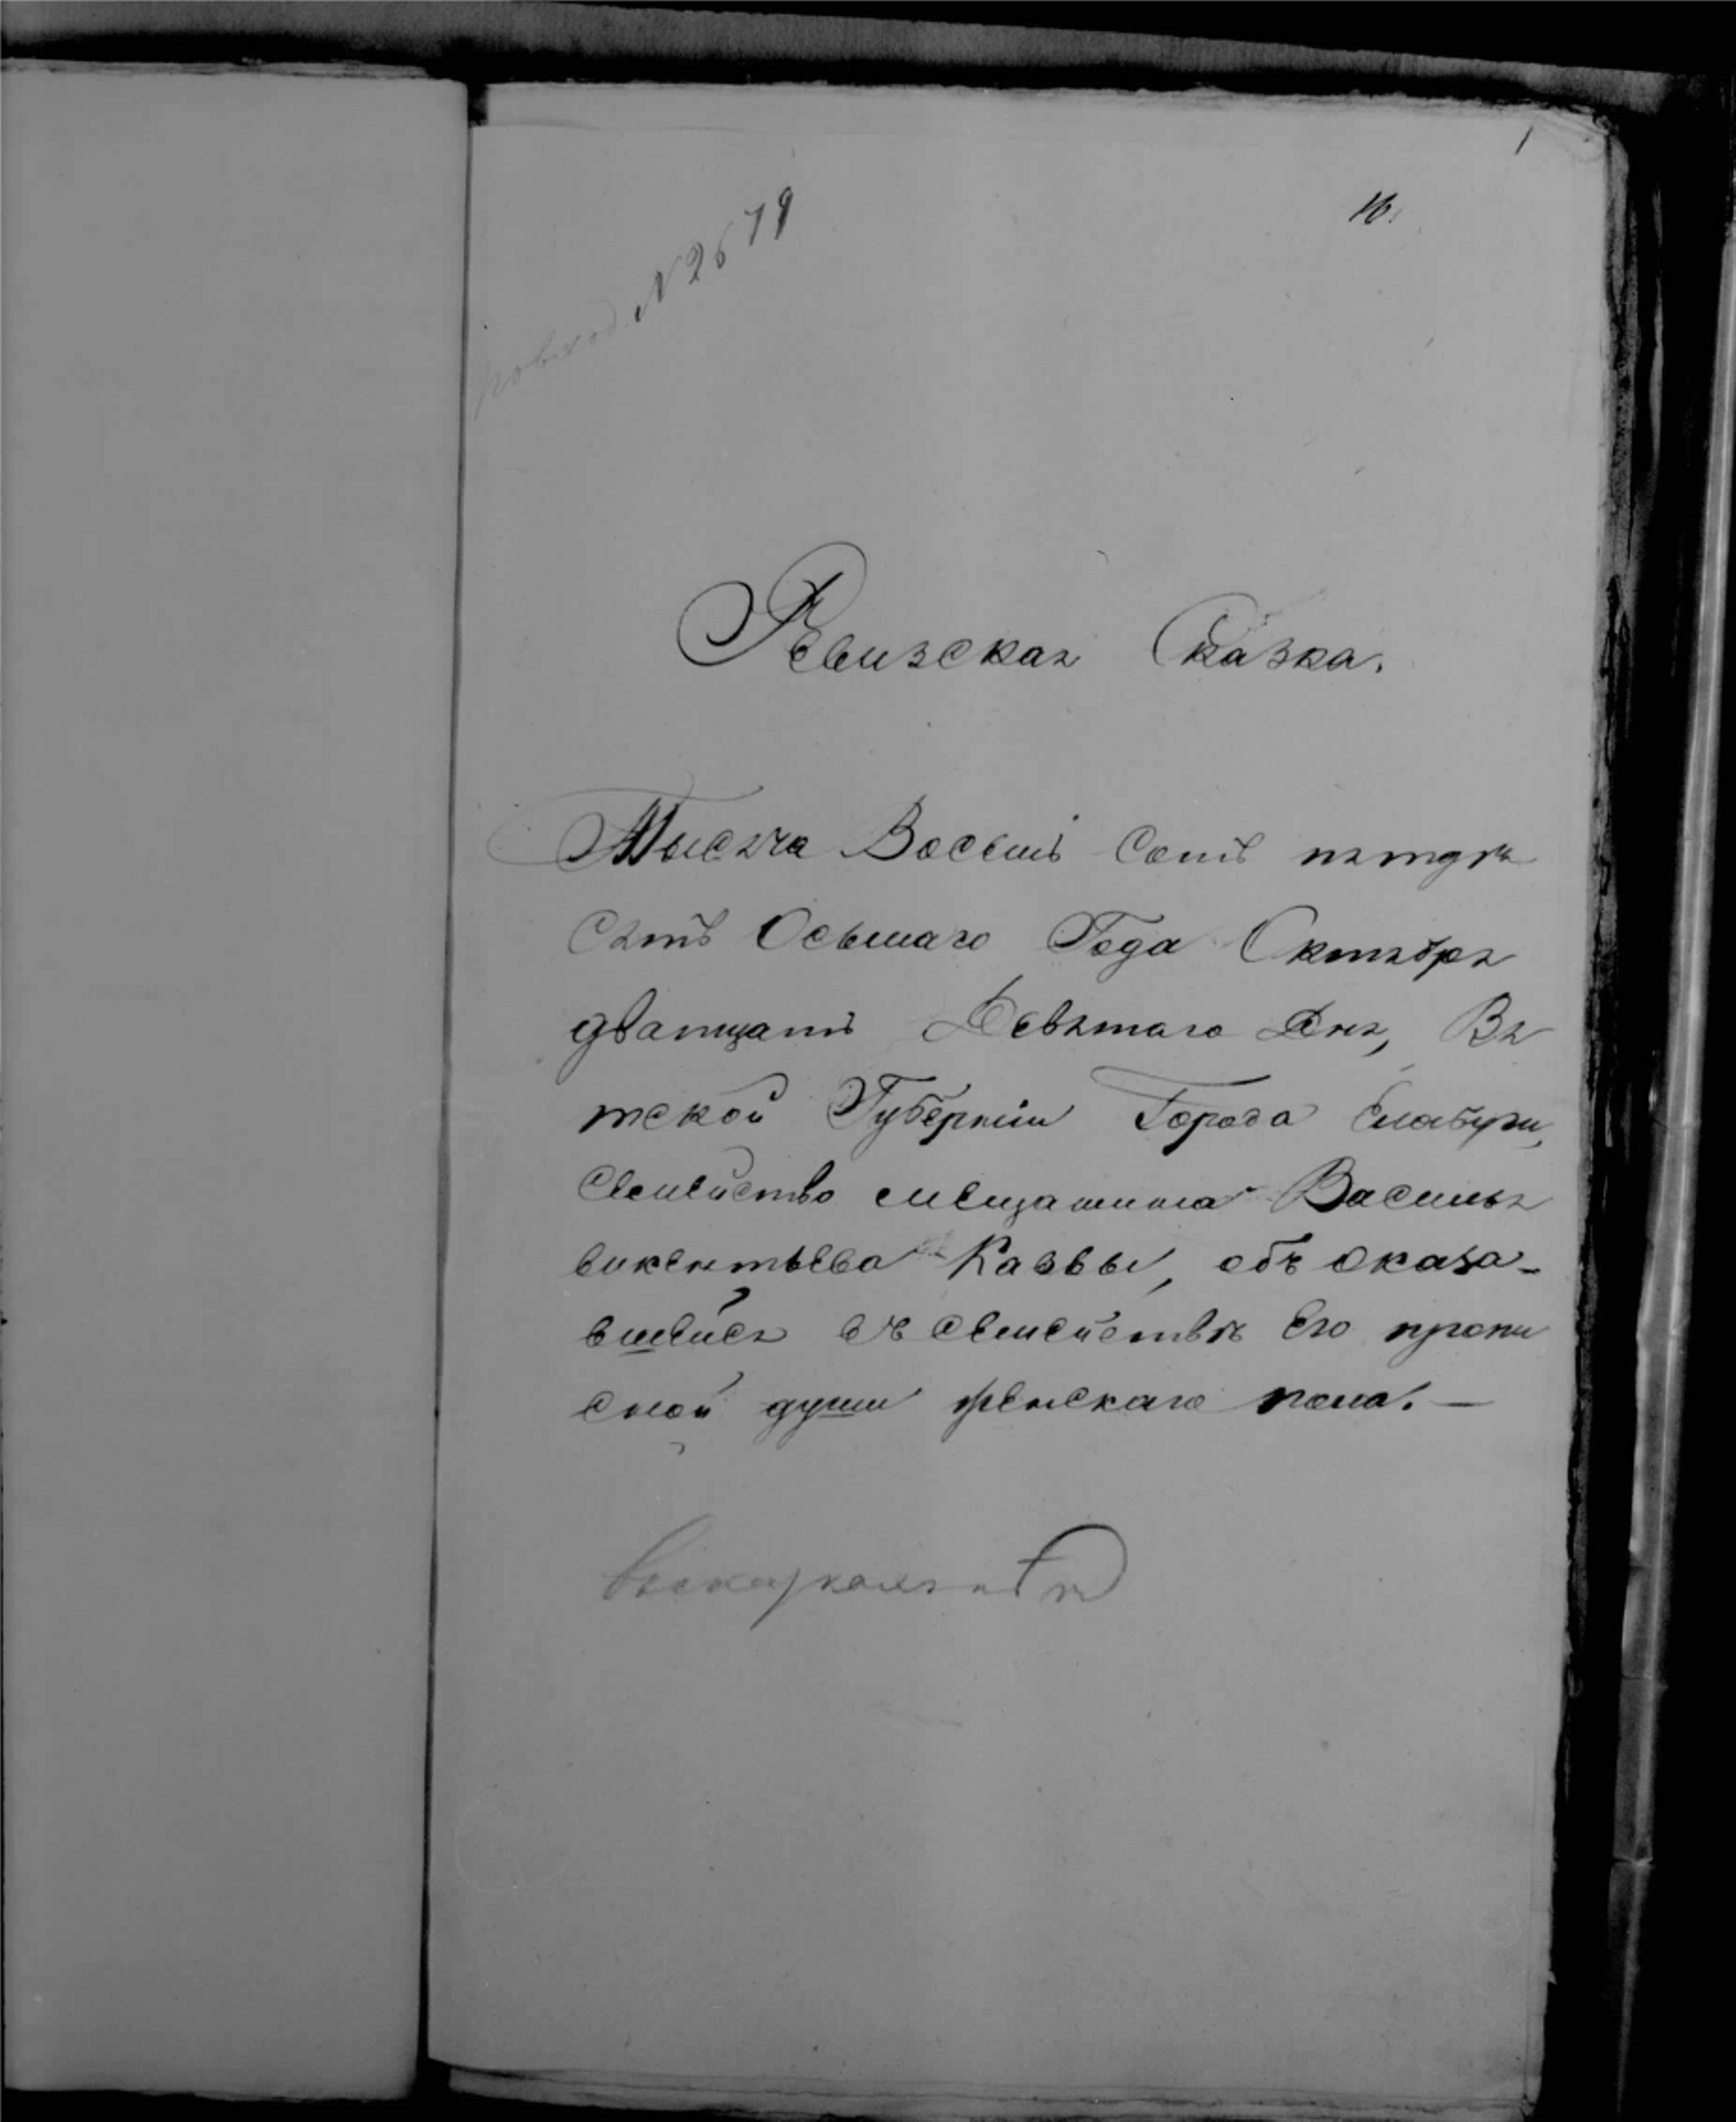 1
16.
N 2679
Ревизская Сказка.
Тысяча Восемь сотъ пятдѣ
сятъ Осьмаго Года Октября
дватцать Девятаго Дня, Вя
тской Губерніи Города Елабуги,
Семейство мещанина Василья
викентьева Казвы, объ оказа-
вшейся въ Семействѣ Его пропи
сной души женскаго пола. —